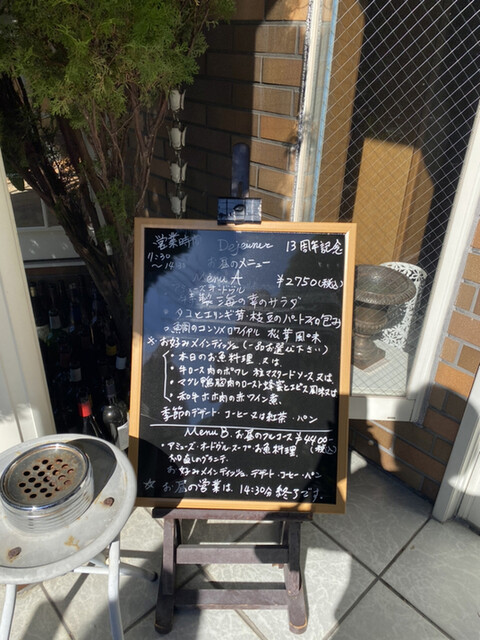 営業時間 Dejeuner 13周年記念
11:30
～14:
お昼のメニュー
Menu A ¥2750(税込)
海の幸のサラダ
タコとエリンギ茸枝豆のパートブリック包み
のコンソメロワイヤル 松茸風味
※お好みメインディッシュ(一品お選び下さい)
・本日のお魚料理 又は
・牛ロース肉のポワレ 粒マスタードソース又は
・マグレ鴨胸肉のロースト蜂蜜とスパイス風味又は
・和牛ホホ肉の赤ワイン煮
季節のデザート・コーヒー又は紅茶・パン
Menu B. お昼のフルコース ¥4400-
(税込)
・アミューズ・オードヴル・スープ・お魚料理、
お口直しのグラニテ、
お好みメインディッシュ、デザート・コーヒー・パン
☆お昼の営業は、14:30分終了です。